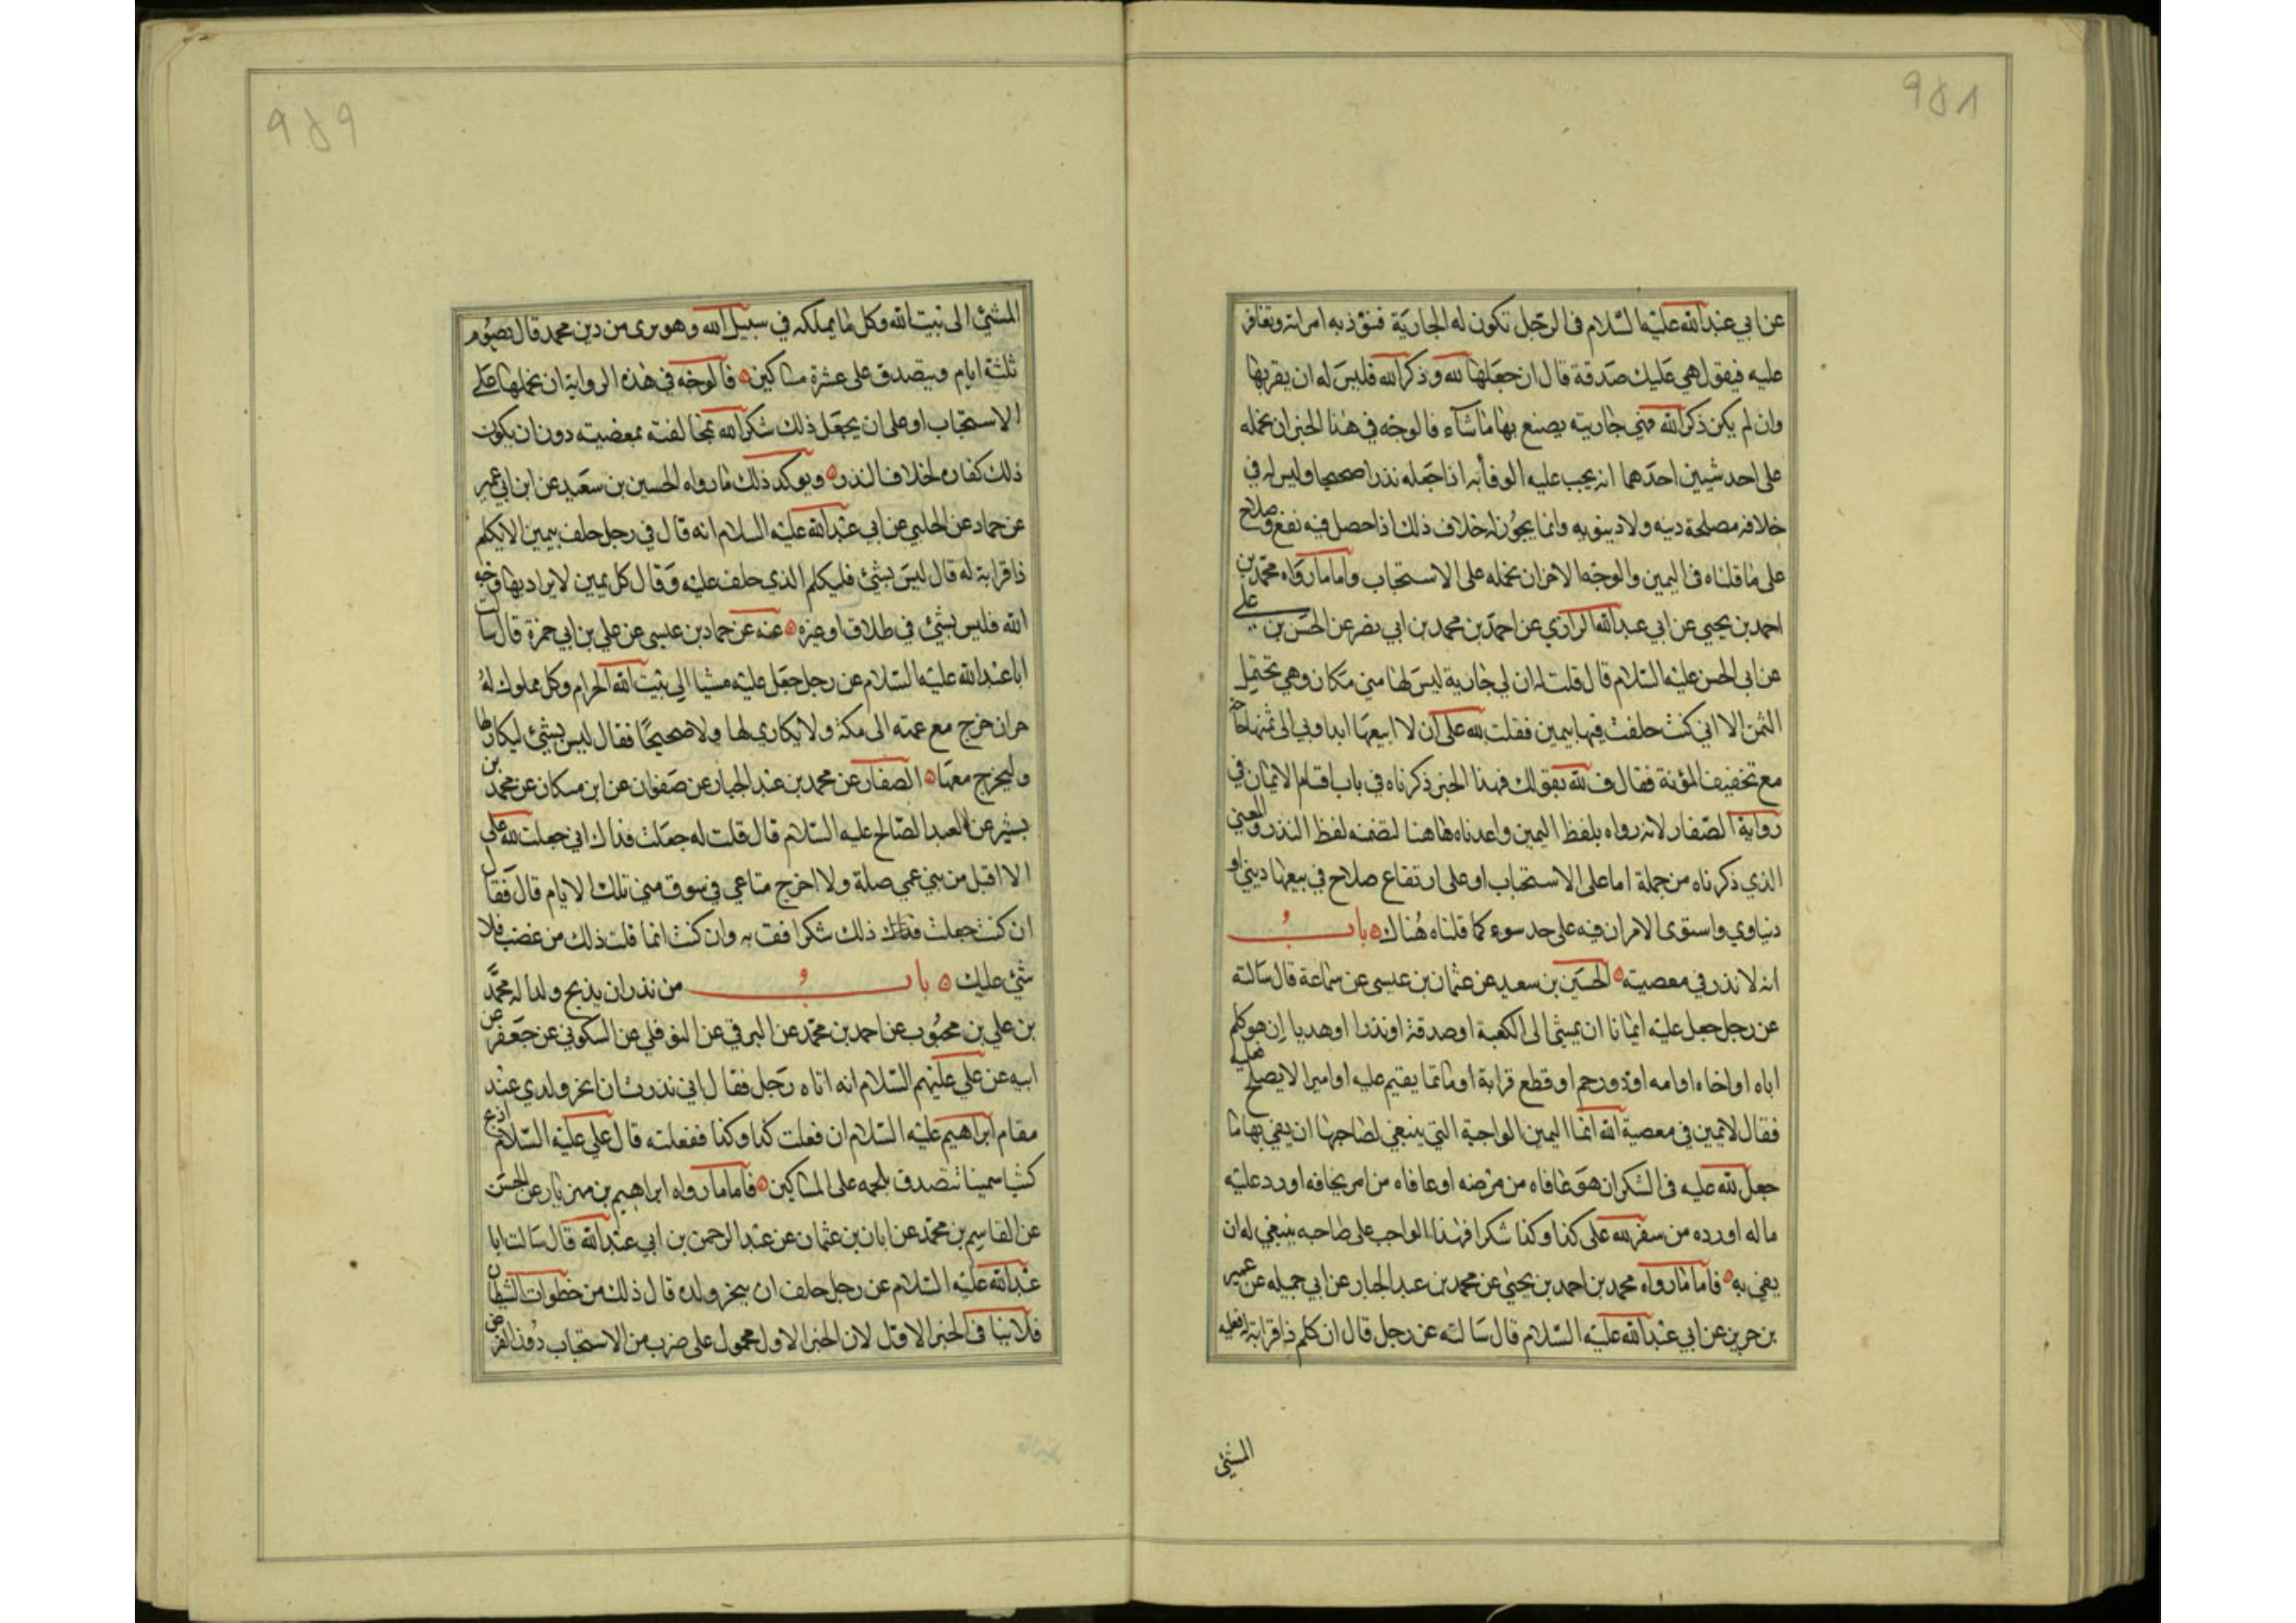 ٩٥٨
عن ابي عبد الله عليه السلام في الرجل تكون له الجارية فتؤذيه امراته وتغار
عليه فيقول هي عليك صدقة قال ان جعلها لله وذكر الله فليس له ان يقربها
وان لم يكن ذكر الله فهي جاريته يصنع بها ما شاء فالوجه في هذا الخبر ان نحمله
على احد شيئين احدهما انه يجب عليه الوفا به اذا جعله نذرا صحيحا وليس له في
خلافه مصلحة دينه ولا دينويه وانما يجوز له خلاف ذلك اذا حصل فيه نفع وصلاح
على ما قلناه في اليمين والوجه الاخر ان نحمله على الاستحباب واما ما رواه محمد بن
احمد بن يحيى عن ابي عبد الله الرازي عن احمد بن محمد بن ابي نصر عن الحسن بن علي
عن ابي الحسن عليه السلام قال قلت له ان لي جارية ليس لها مني مكان وهي تحتمل
الثمن الا اني كنت حلفت فيها بيمين فقلت لله على ان لا ابيعها ابدا وبي الى ثمنها حاجة
مع تخفيف المؤنة فقال ف لله بقولك فهذا الخبر ذكرناه في باب اقسام الايمان في
رواية الصفار لانه رواه بلفظ اليمين واعدناه هاهنا لتضمنه لفظ النذر والمعنى
الذي ذكرناه من جملة اما على الاستحباب او على ارتفاع صلاح في بيعها ديني او
دنياوي واستوى الامران فيه على حد سوء كما قلناه هناك ه باب
انه لا نذر في معصيته ه الحسين بن سعيد عن عثمان بن عيسى عن سماعة قال سالته
عن رجل جعل عليه ايمانا ان يمشي الى الكعبة او صدقة او نذرا او هديا ان هو كلم
اباه او اخاه او امه او ذو رحم او قطع قرابة او ماثما يقيم عليه او امرا لا يصلح فعليه
فقال لا يمين في معصية الله انما اليمين الواجبة التي ينبغي لصاحبها ان يفي بها ما
جعل لله عليه في الشكر ان هو عافاه من مرضه او عافاه من امر يخافه او رد عليه
ماله او رده من سفر لله على كذا وكذا شكرا فهذا الواجب على صاحبه ينبغي له ان
يفي به ه فاما ما رواه محمد بن احمد بن يحيى عن محمد بن عبد الجبار عن ابي جميله عن عمير
بن حريز عن ابي عبد الله عليه السلام قال سالته عن رجل قال ان كلم ذا قرابة له فعليه
المشي
٩٥٩
المشي الى بيت الله وكل ما يملكه في سبيل الله وهو برى من دين محمد قال يصوم
ثلثة ايام ويتصدق على عشرة مساكين ه فالوجه في هذه الرواية ان نحملها على
الاستحباب او على ان يجعل ذلك شكر الله بمخالفته بمعصيته دون ان يكون
ذلك كفارة لخلاف النذر ه ويوكد ذلك ما رواه الحسين بن سعيد عن ابن ابي عمير
عن حماد عن الحلبي عن ابي عبد الله عليه السلام انه قال في رجل حلف بيمين الا يكلم
ذا قرابة له قال ليس بشئ فليكلم الذي حلف عليه وقال كل يمين لا يراد بها وجه
الله فليس بشئ في طلاق او غيره ه عنه عن حماد بن عيسى عن علي بن ابي حمزة قال سالت
ابا عبد الله عليه السلام عن رجل جعل عليه مشيا الى بيت الله الحرام وكل مملوك له
حر ان خرج مع عمته الى مكة ولا يكاري لها ولا صحيحا فقال ليس بشئ ليكارلها
وليخرج معها ه الصفار عن محمد بن عبد الجبار عن صفوان عن ابن مسكان عن محمد بن
بشير عن العبد الصالح عليه السلام قال قلت له جعلت فداك اني جعلت لله على
الا اقبل من بني عمي صلة ولا اخرج متاعي في سوق منى تلك الايام قال فقال
ان كنت جعلت ذلك شكرا فف به وان كنت انما قلت ذلك من غضب فلا
شئ عليك ه باب من نذر ان يذبح ولدا له محمد
بن علي بن محبوب عن احمد بن محمد عن البرقي عن النوفلي عن السكوني عن جعفر عن
ابيه عن علي عليهم السلام انه اتاه رجل فقال اني نذرت ان انحر ولدي عند
مقام ابراهيم عليه السلام ان فعلت كذا وكذا ففعلته قال علي عليه السلام اذبح
كبشا سمينا تتصدق بلحمه على المساكين ه فاما ما رواه ابراهيم بن مهزيار عن الحسن
عن القاسم بن محمد عن ابان بن عثمان عن عبد الرحمن بن ابي عبد الله قال سالت ابا
عبد الله عليه السلام عن رجل حلف ان ينحر ولده قال ذلك من خطوات الشيطان
فلا ينافي الخبر الاول لان الخبر الاول محمول على ضرب من الاستحباب دون الفرض